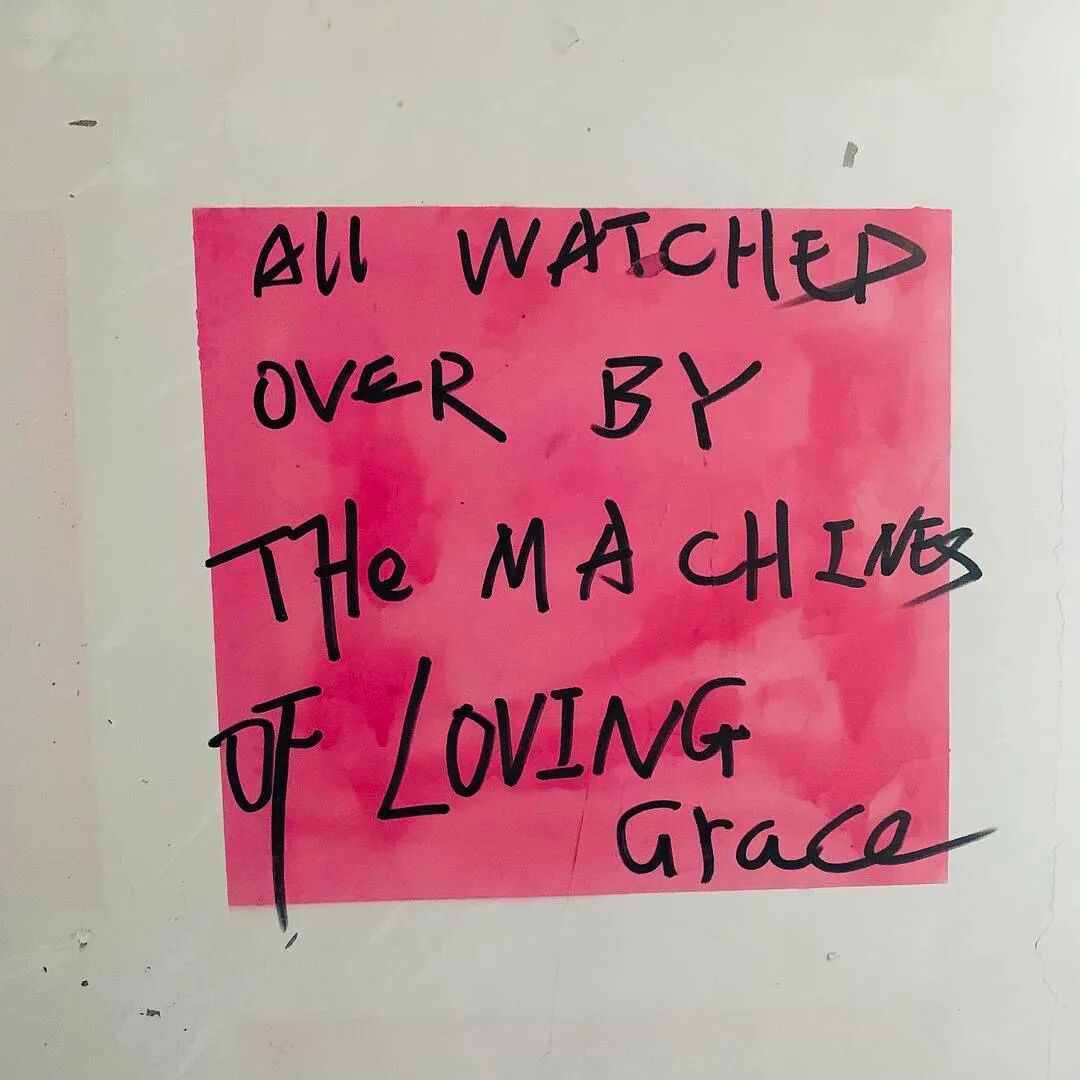 All WATCHED
OVER BY
THe MACHINES
OF LOVING
Grace